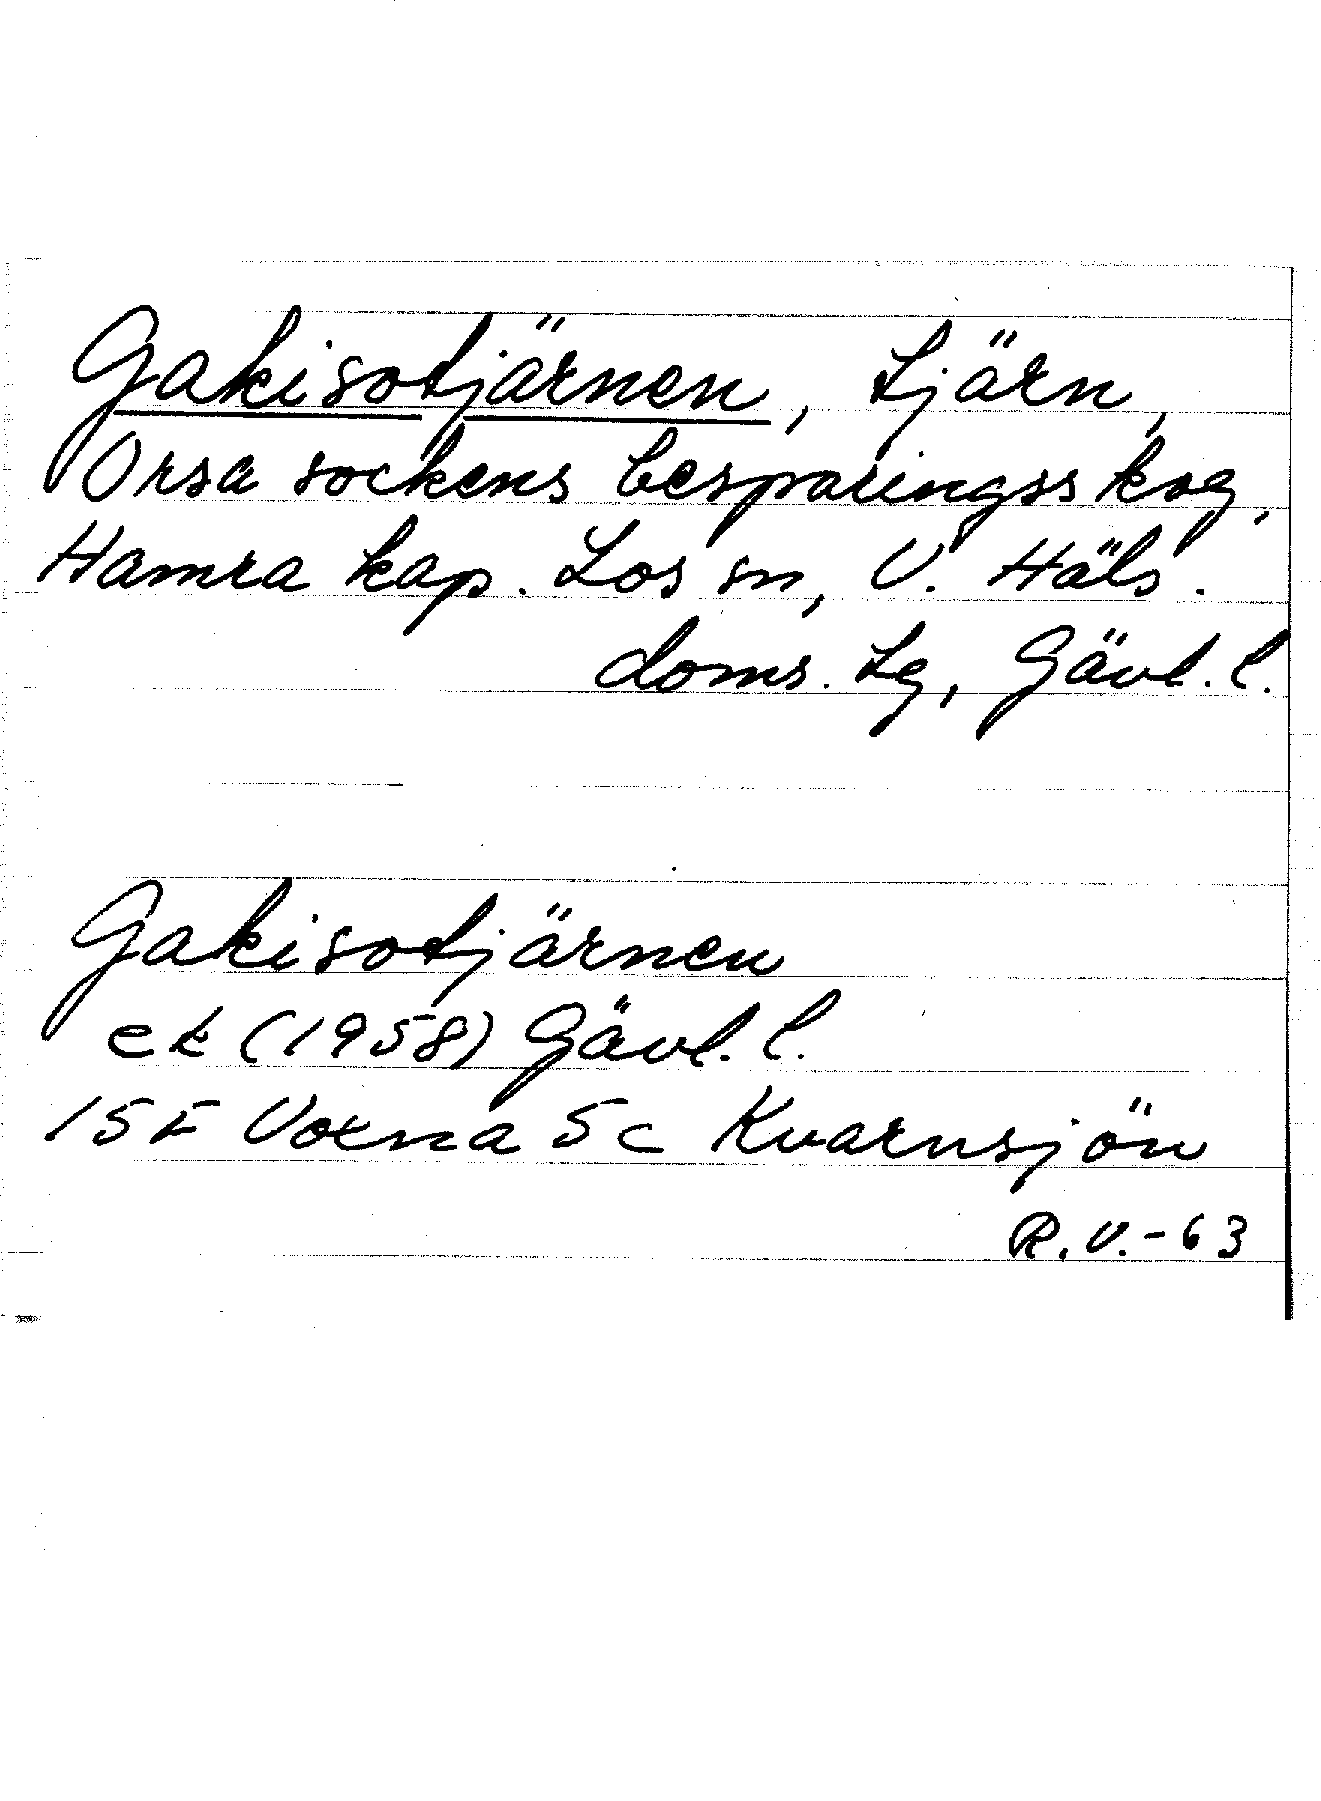 Gakisotjärnen, tjärn,
Orsa sockens besparingsskog,
Hamra kap. Los sn, V. Häls.
doms. tg, Gävl. l.
Gakisotjärnen
ek (1958) Gävl. l.
15 E Voxna 5 c Kvarnsjön
R. V. - 63